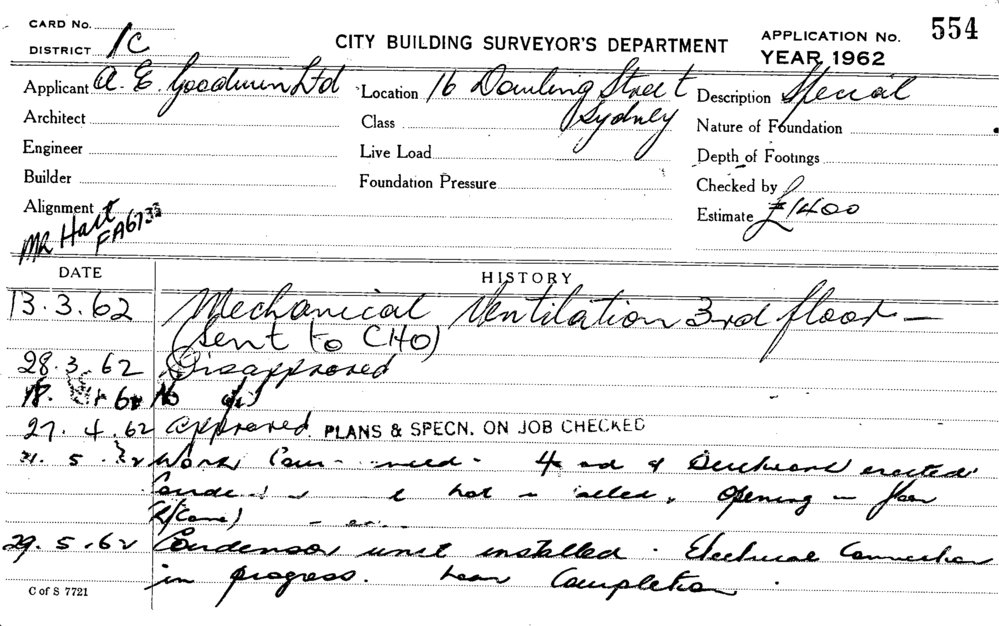 CARD No.
DISTRICT 1C
CITY BUILDING SURVEYOR'S DEPARTMENT
APPLICATION No. 554
YEAR 1962
Applicant A. E. Goodwin Ltd
Location 16 Dowling Street
Sydney
Description Special
Architect
Class
Nature of Foundation
Engineer
Live Load
Depth of Footings
Builder
Foundation Pressure
Checked by
Alignment
Estimate £1400
Mr Hart
FA6733
DATE
HISTORY
13.3.62 Mechanical Ventilation 3rd floor —
(sent to CHO)
28.3.62 Disapproved
18. 62 No
27.4.62 approved. PLANS & SPECN. ON JOB CHECKED
5. Work erected
not Opening in floor
29.5.62 Condensor unit installed. Electrical Connection
in progress. Near Completion.
C of S 7721